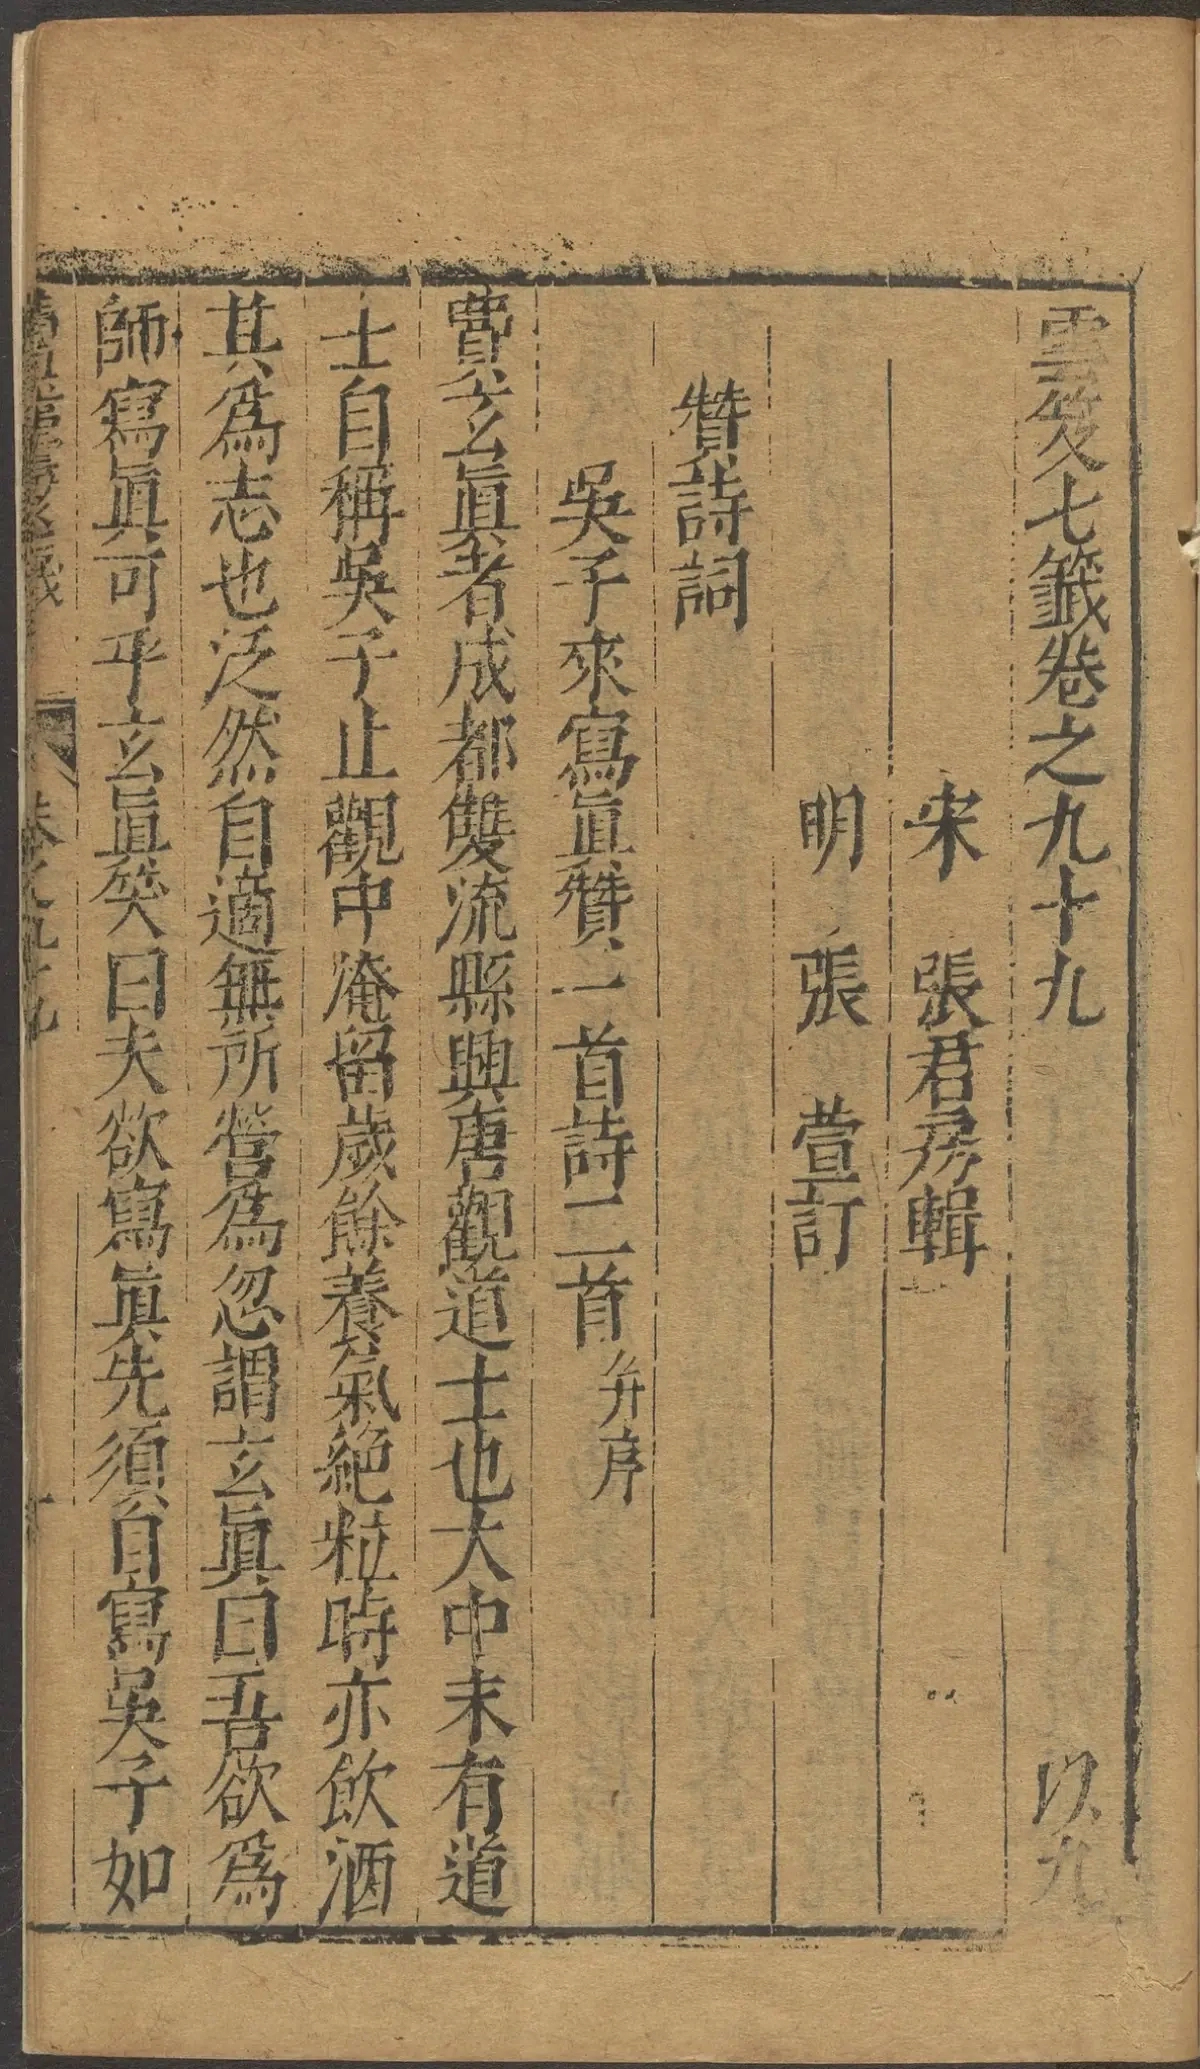 雲笈七籤卷之九十九 以九
宋 張君房輯
明 張 萱訂
贊詩詞
吳子來寫眞贊一首詩二首 并序
費玄眞者成都雙流縣興唐觀道士也大中末有道
士自稱吳子止觀中淹留歲餘養氣絕粒時亦飲酒
其爲志也泛然自適無所營爲忽謂玄眞曰吾欲爲
師寫眞可乎玄眞笑曰夫欲寫眞先須自寫吳子如
卷之九十九